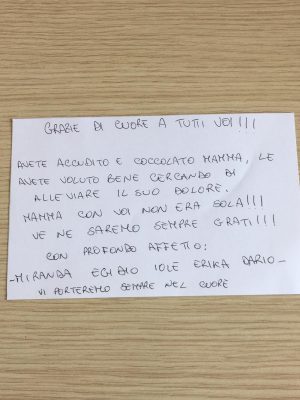 GRAZIE DI CUORE A TUTTI VOI!!!
AVETE ACCUDITO E COCCOLATO MAMMA, LE
AVETE VOLUTO BENE CERCANDO DI
ALLEVIARE IL SUO DOLORE.
MAMMA CON VOI NON ERA SOLA!!!
VE NE SAREMO SEMPRE GRATI!!!
CON PROFONDO AFFETTO:
-MIRANDA EGIDIO IOLE ERIKA DARIO-
VI PORTEREMO SEMPRE NEL CUORE